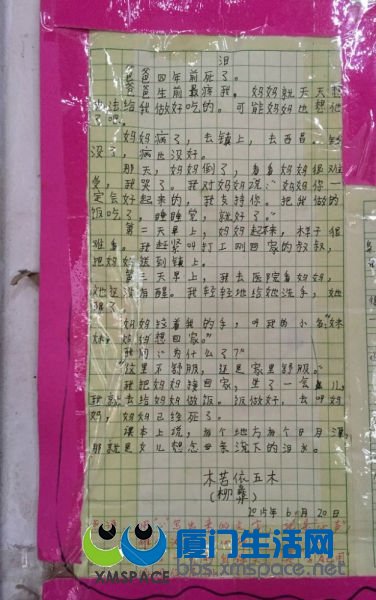 泪
爸爸四年前死了。
爸爸生前最疼我，妈妈就天天想
办法给我做好吃的。可能妈妈也想他
了吧。
妈妈病了，去镇上，去西昌。钱
没了，病也没好。
那天，妈妈倒了，看看妈妈很难
受，我哭了。我对妈妈说："妈妈你一
定会好起来的，我支持你。把我做的
饭吃了，睡睡觉，就好了。"
第二天早上，妈妈起来，样子很
难看。我赶紧叫打工刚回家的叔叔，
把妈妈送到镇上。
第三天早上，我去医院看妈妈，
她还没有醒。我轻轻地给她洗手，她
醒了。
妈妈拉着我的手，叫我的小名"妹
妹，妈妈想回家。"
我问："为什么了？"
"这里不舒服，还是家里舒服。"
我把妈妈接回家，坐了一会儿，
我就去给妈妈做饭。饭做好，去叫妈
妈，妈妈已经死了。
课本上说，有个地方有个日月潭，
那就是女儿想念母亲流下的泪水。
木苦依五木
(柳彝)
2015年6月20日
厦门生活网
XMSPACE
bbs.xmspace.net